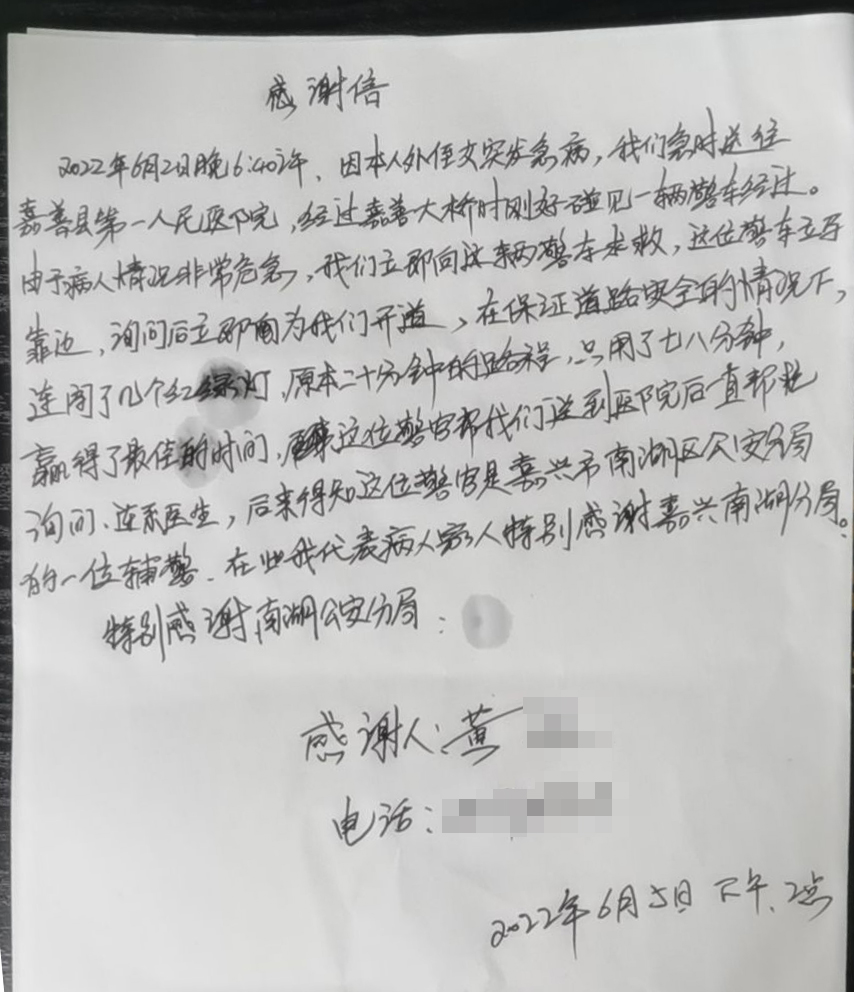 感谢信
2022年6月2日晚6:40许、因本人外侄女突发急病,我们急时送往
嘉善县第一人民医院,经过嘉善大桥时刚好碰见一辆警车经过。
由于病人情况非常危急,我们立即向这辆警车求救,这位警车立导
靠边,询问后立即为我们开道,在保证道路安全的情况下,
连闯了几个红绿灯,原本二十分钟的路程,只用了七八分钟,
赢得了最佳的时间,这位警官帮我们送到医院后一直帮忙
询问、连系医生,后来得知这位警官是嘉兴市南湖区公安分局
的一位辅警、在此我代表病人家人特别感谢嘉兴南湖分局。
特别感谢南湖公安分局:
感谢人:黄
电话:
2022年6月5日下午、2点